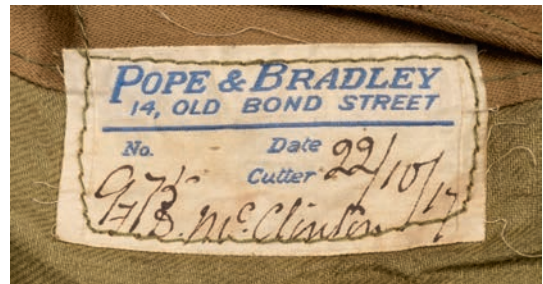 POPE & BRADLEY
14, OLD BOND STREET
No. Date 22/10/17
Cutter
McClinton